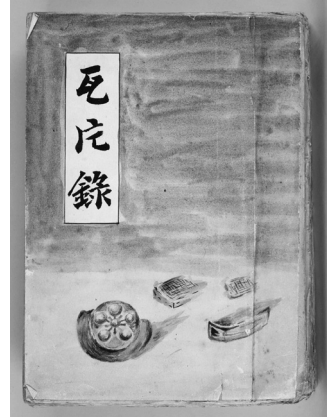 瓦片錄